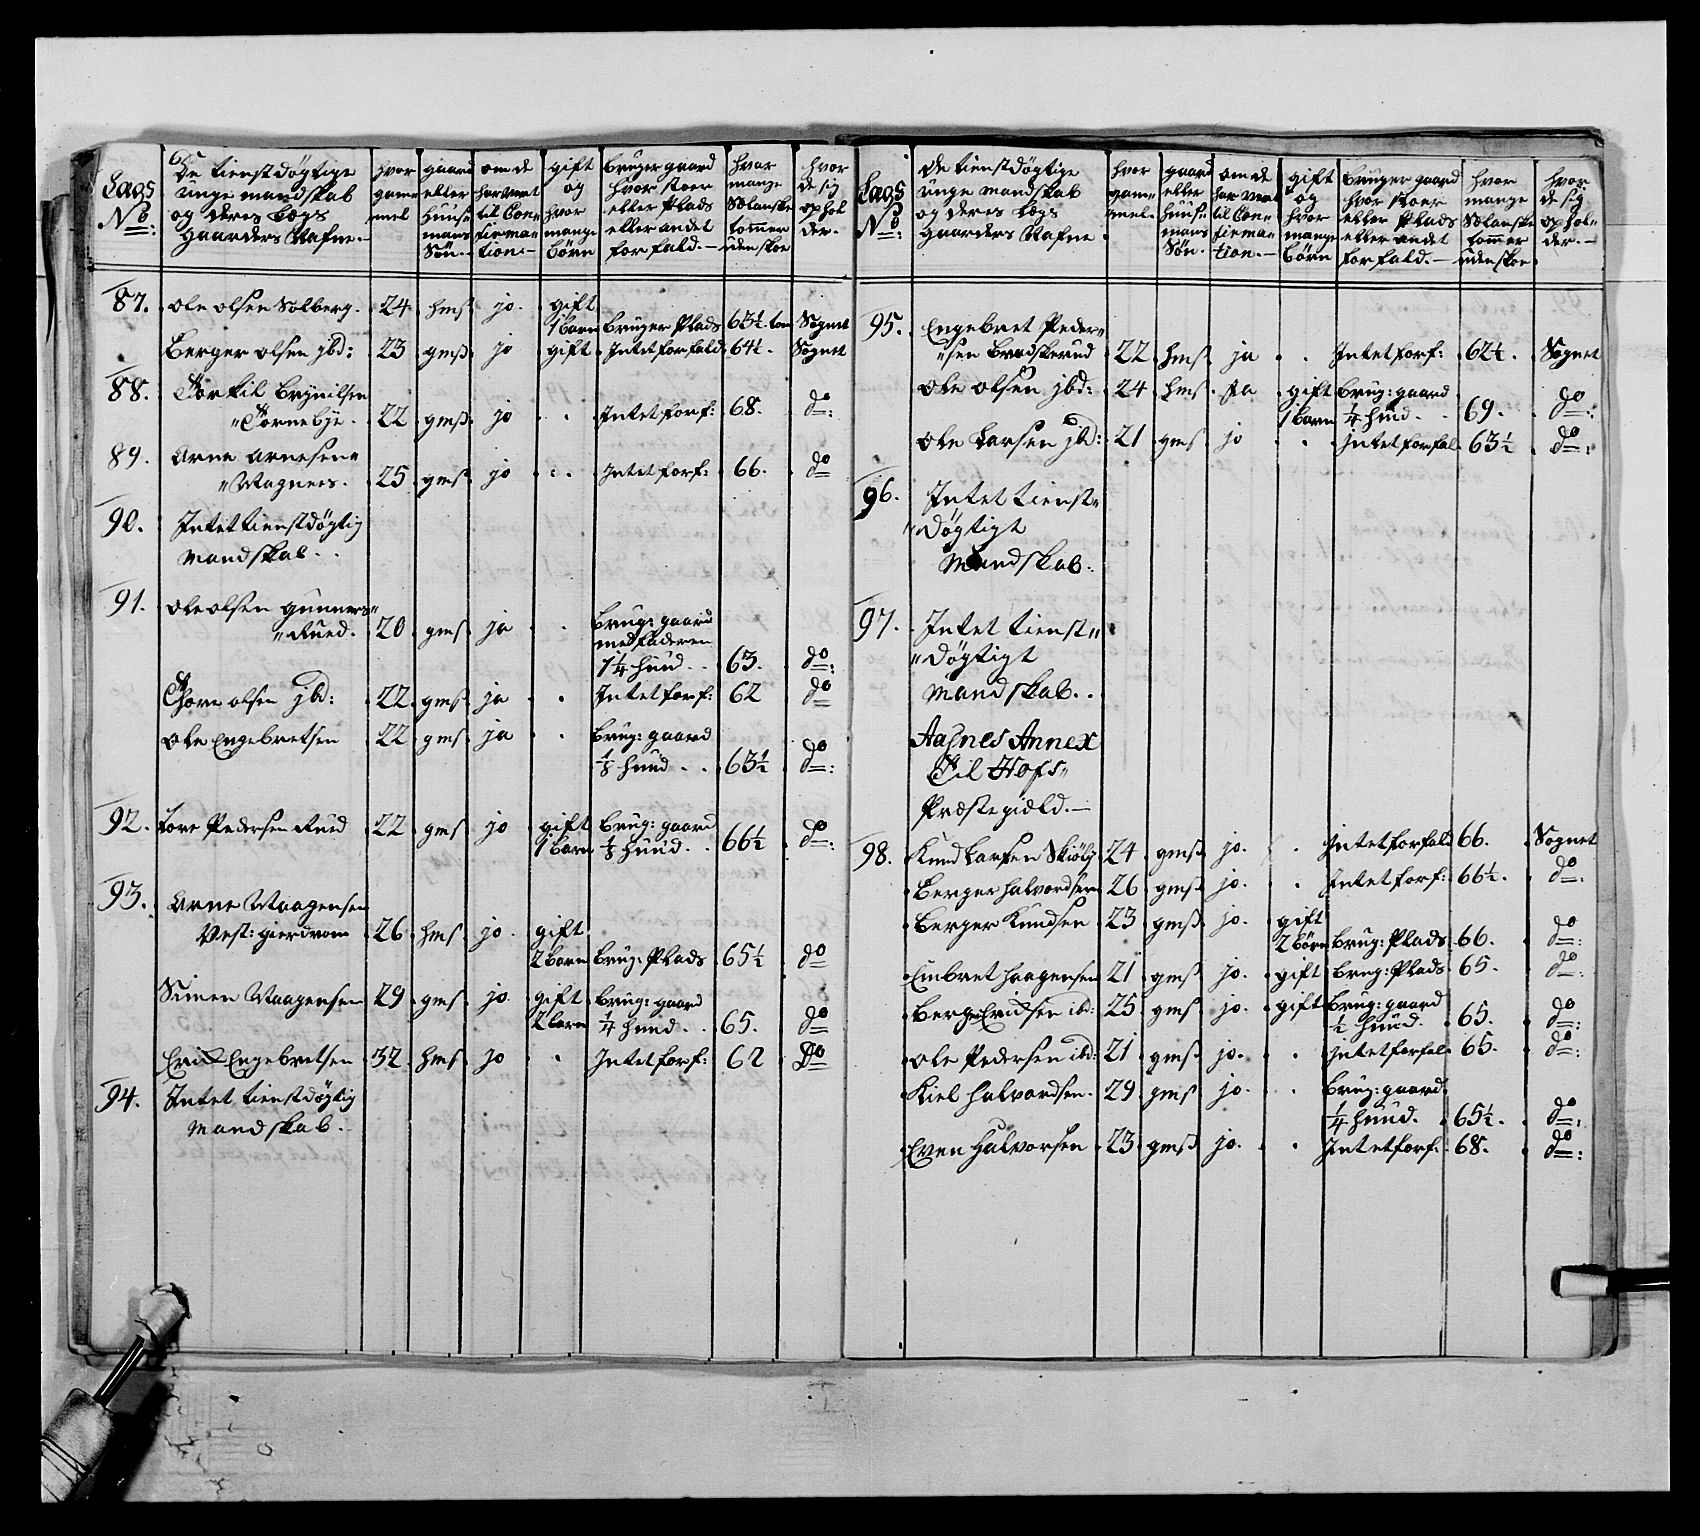 Lægs No:
De tienstdøgtige unge mandskab og deres Lægs gaarders Nafne.
hvor gam- mel
gaard eller huus- mans Søn.
om de har vært til Con- firma- tion.
gift og hvor mange børn
bruger gaard hvor stoer eller Plads eller andet forfald.
hvor mange Siælanske tommer uden skoe
hvor de sig ophol- der.
87. Ole olsen Solberg. 24 hmsß jo. gift
1 barn bruger Plads 63½ tom Sognet
Berger olsen jbd: 23 gmsß jo gift Intet forfald 64½. Sognet
88. Torkil brynilsen
Tornebye. 22. gmsß. jo Intet forf: 68. do:
89. Arne arnesen
Wagnees. 25 gmsß jo Intet forf: 66. do
90. Intet tienstdøgtig
Mandskab.
91. ole olsen gunners
Rued. 20 gms. ja brug: gaard
med faderen
1¼ huud. 63. do:
Thore olsen jbd: 22. gmsß. ja Intet forf: 62 do
Ole Engebretsen 22 gms. ja brug: gaard
⅛ huud. 63½ do:
92. Tore Pedersen Rued 22 gms jo gift brug: gaard
1 barn ⅛ huud. 66½ do:
93. Arne Waagensen
Vest: gierdrom 26 hms jo. gift
2 barn brug: Plads 65½ do
Simen Waagensen 29 gms. jo. gift brug: gaard
2 barn ¼ huud. 65. do
Erik Engebretsen 32 hms jo Intet forf: 62 Do
94. Intet tienstdøgtig
Mandskab.
Lægs No:
De tienstdøgtige unge mandskab og deres Lægs gaarders Nafne.
hvor gam- mel.
gaard eller huus- mans Søn.
om de har vært til Con- firma- tion.
gift og hvor mange børn
bruger gaard hvor stoer eller Plads eller andet forfald.
hvor mange Siælanske tommer uden skoe.
hvor de sig ophol- der.
95. Engebret Peder-
sen bradskerud 22 hmsß ja Intet forf: 62½. Sognet
ole olsen jbd: 24 hms. ja gift brug: gaard
1 barn ¼ huud. 69. do:
Ole Larsen jbd: 21 gms jo Intet forfal 63½ do:
96. Intet tienst-
døgtigt
Mandskab.
97. Intet tienst-
døgtigt
Mandskab.
Aasnes Annex
Til Hofs
Præstegield.
98. Knud Larsen Skiølj 24 gmsß jo. Intet forfald 66. Sognet
Berger halvordsen 26 gmsß jo. Intet forf: 66½. do:
Berger Knudsen 23 gmsß. jo. gift
2 børn brug: Plads 66. do:
Embret haagensen 21 gmsß jo. gift brug: Plads 65. do:
Berger Eridsen ibd: 25 gmsß. jo. gift brug: gaard
½ huud. 65. do:
Ole Pedersen ibd: 21 gmsß jo. Intet forfal 65. do:
Kiel halvordsen. 29 gmsß jo. brug: gaard
¼ huud. 65½. do:
Even Halvorsen 23 gmsß jo. Intet forf: 68. do: